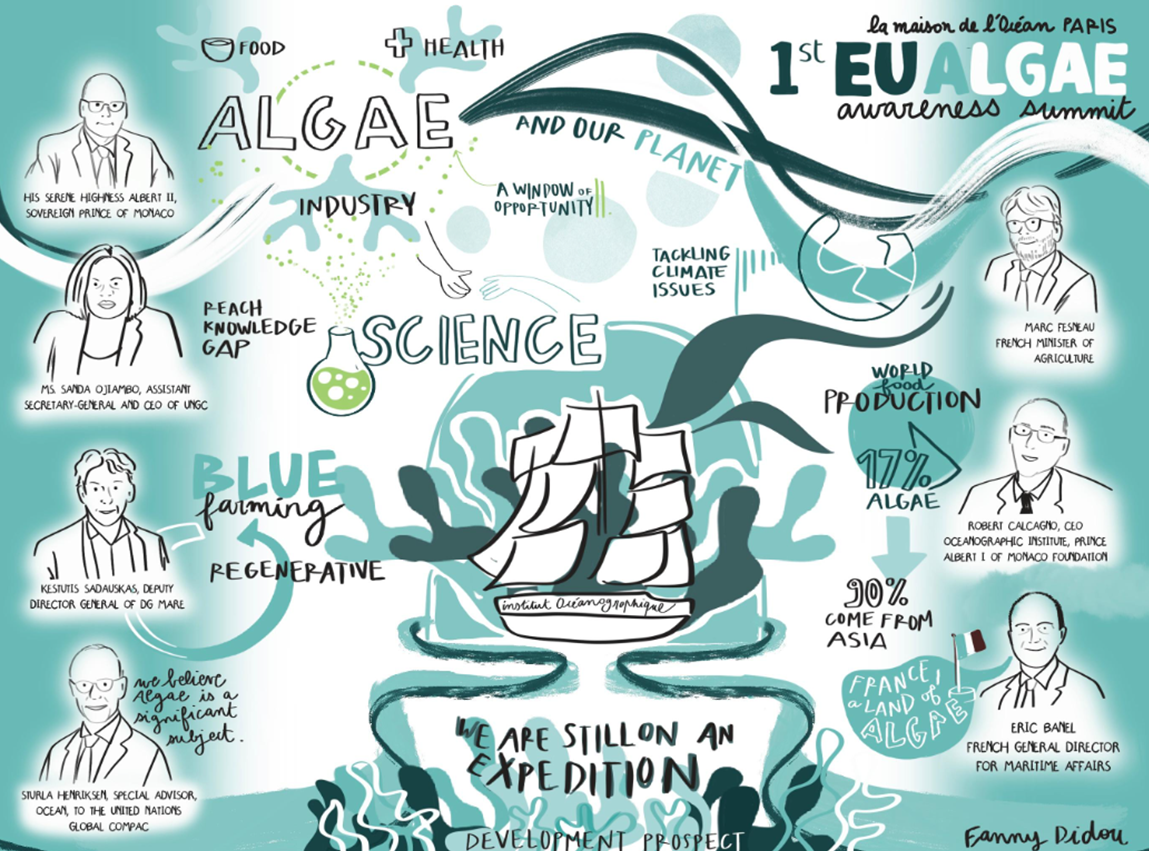 la maison de l'Océan PARIS
1st EU ALGAE
awareness summit
FOOD
HEALTH
ALGAE
AND OUR PLANET
INDUSTRY
A WINDOW OF
OPPORTUNITY
HIS SERENE HIGHNESS ALBERT II,
SOVEREIGN PRINCE OF MONACO
TACKLING
CLIMATE
ISSUES
REACH
KNOWLEDGE
GAP
SCIENCE
MS. SANDA OJIAMBO, ASSISTANT
SECRETARY-GENERAL AND CEO OF UNGC
MARC FESNEAU
FRENCH MINISTER OF
AGRICULTURE
WORLD
food
PRODUCTION
17%
ALGAE
BLUE
farming
REGENERATIVE
KESTUTIS SADAUSKAS, DEPUTY
DIRECTOR GENERAL OF DG MARE
institut Océanographique
ROBERT CALCAGNO, CEO
OCEANOGRAPHIC INSTITUTE, PRINCE
ALBERT I OF MONACO FOUNDATION
90%
COME FROM
ASIA
FRANCE,
a LAND of
ALGAE
ERIC BANEL
FRENCH GENERAL DIRECTOR
FOR MARITIME AFFAIRS
we believe
algae is a
significant
subject.
STURLA HENRIKSEN, SPECIAL ADVISOR,
OCEAN, TO THE UNITED NATIONS
GLOBAL COMPAC
WE ARE STILL ON AN
EXPEDITION
DEVELOPMENT PROSPECT
Fanny Didou